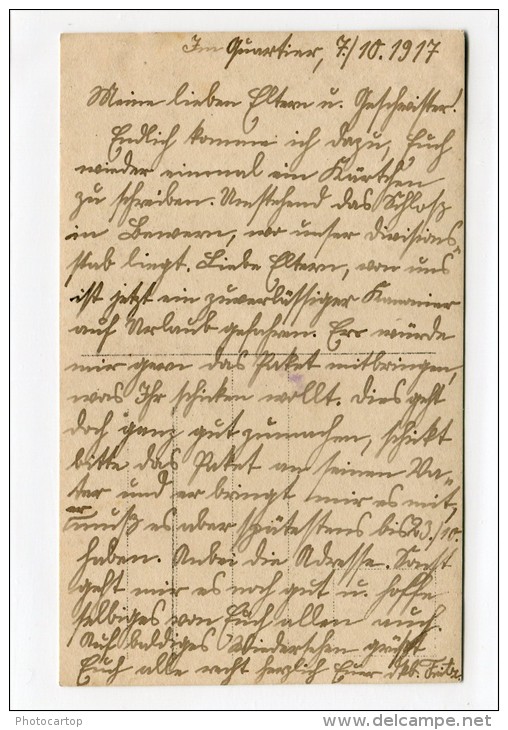 Im Quartier, 7./10.1917
Meine lieben Eltern u. Geschwister!
Endlich komme ich dazu, Euch
wieder einmal ein Kärtchen
zu schreiben. Umstehend das Schloß
in Bewern, wo unser Divisions-
stab liegt. Liebe Eltern, von uns
ist jetzt ein zuverlässiger Kanonier
auf Urlaub gefahren. Err würde
mir gern das Paket mitbringen,
was Ihr schicken wollt. Dies geht
doch ganz gut zumachen, schickt
bitte das Paket an seinen Va-
ter und er bringt mir es mit,
er muß es aber spätestens bis 23./10.
haben. Anbei die Adresse. Sonst
geht mir es noch gut u. hoffe
selbiges von Euch allen auch.
Auf baldiges Wiedersehen grüßt
Euch alle recht herzlich Euer dkb. Fritz
Photocartop
delcampe.net